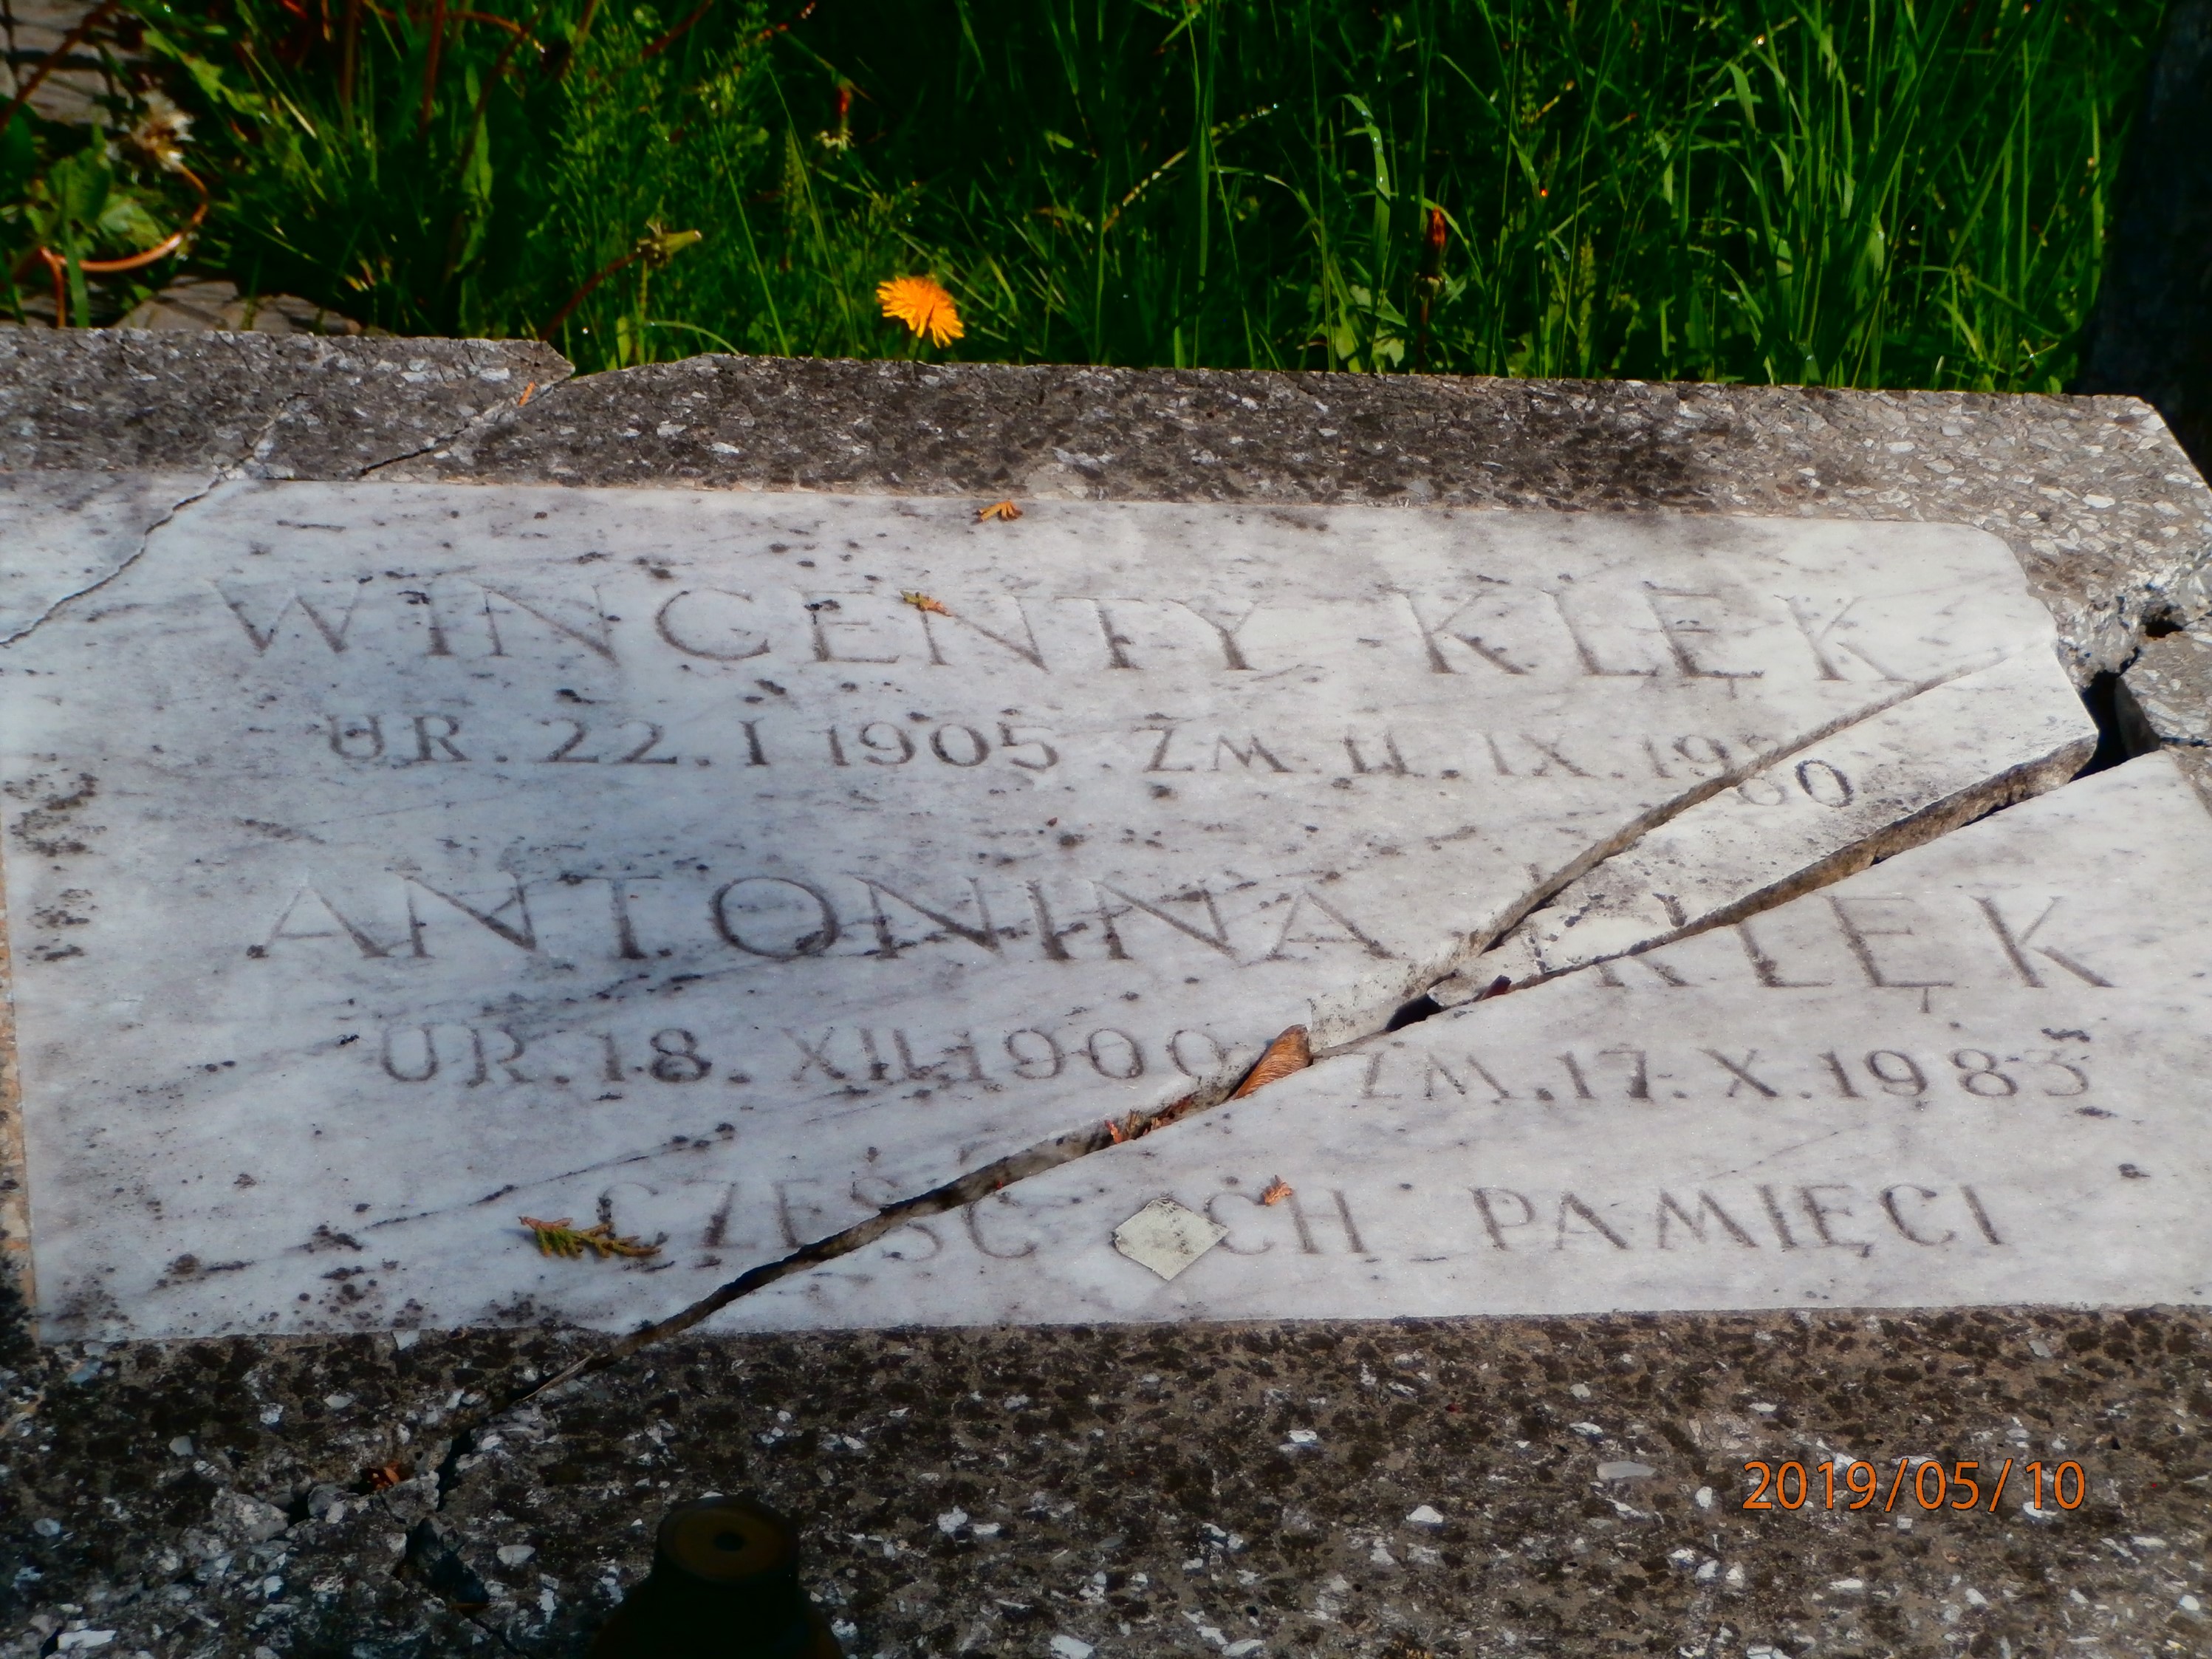 WINCENTY KLĘK
UR. 22. I 1905 . ZM. 11. IX. 1960
ANTONINA KLĘK
UR. 18. XII. 1900 ZM. 17. X. 1983
CZEŚĆ ICH PAMIĘCI
2019/05/10